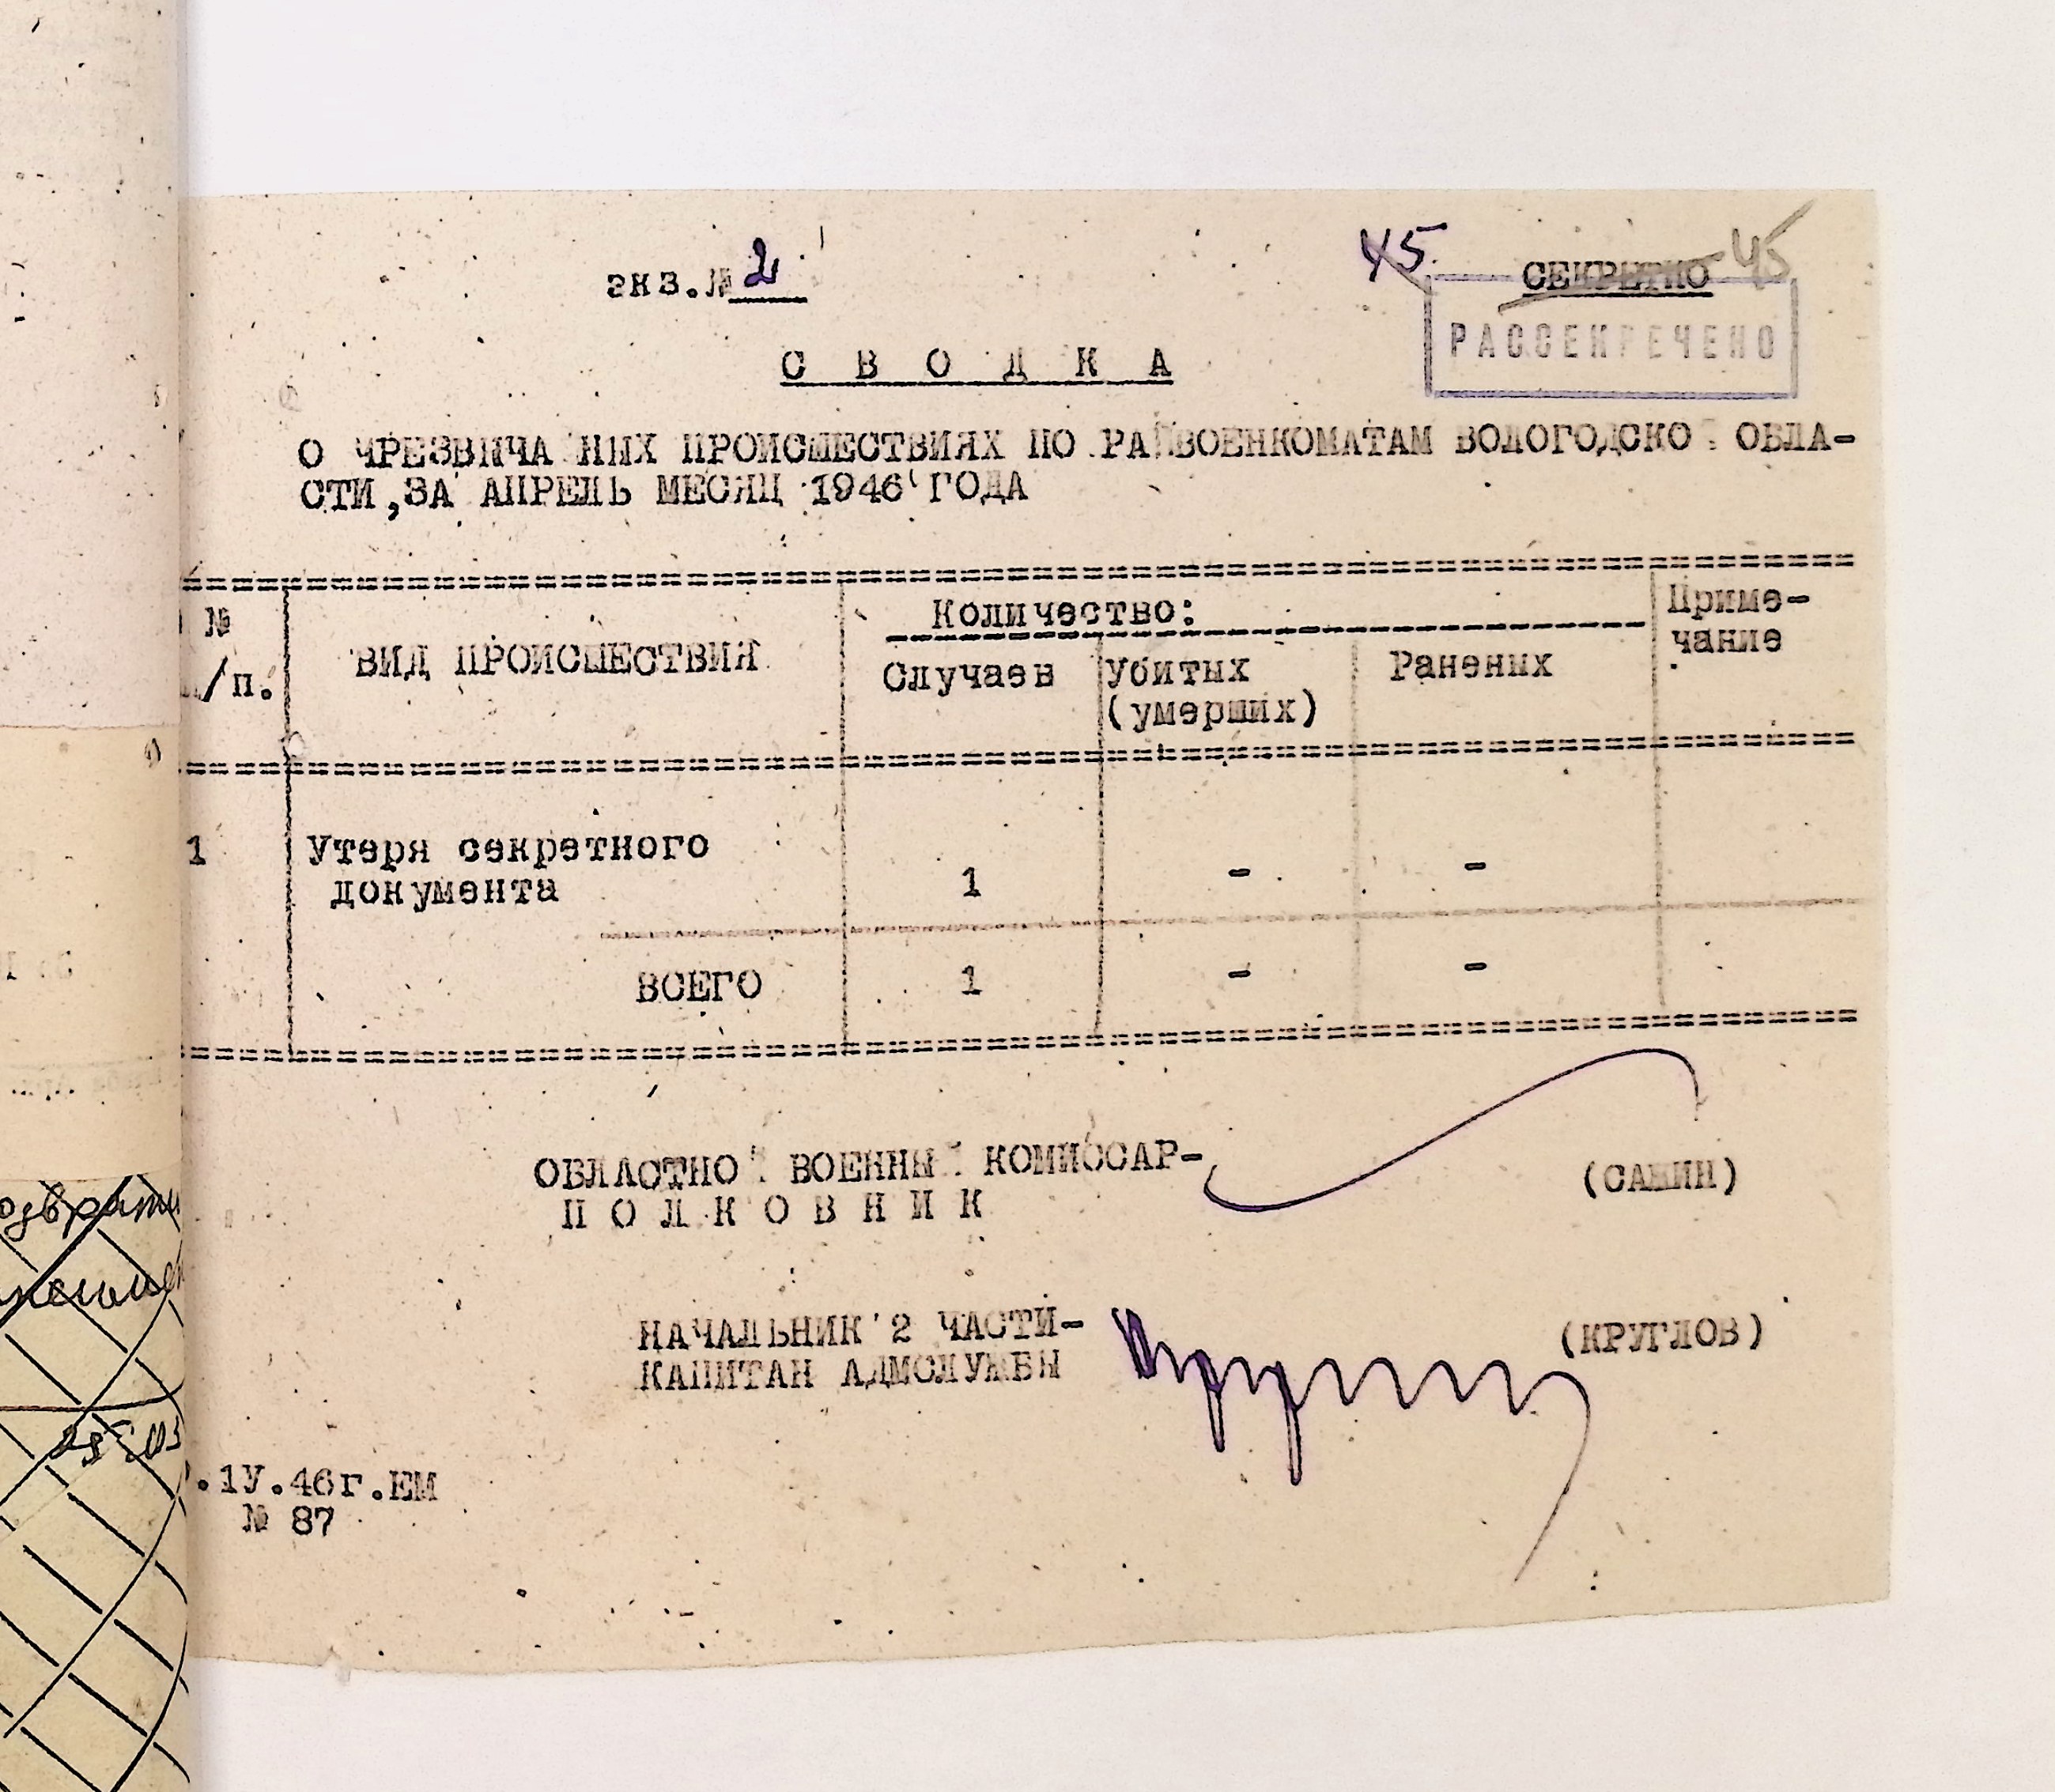 экз.№ 2
45.
СЕКРЕТНО 45
РАССЕКРЕЧЕНО
С В О Д К А
О ЧРЕЗВЫЧА НЫХ ПРОИСШЕСТВИЯХ ПО РАЙВОЕНКОМАТАМ ВОЛОГОДСКО ОБЛА-
СТИ,ЗА АПРЕЛЬ МЕСЯЦ 1946 ГОДА
№
/п.
ВИД ПРОИСШЕСТВИЯ
Количество:
Случаев
Убитых
(умерших)
Раненых
Приме-
чание
1 Утеря секретного
документа 1 - -
ВСЕГО 1 - -
ОБЛАСТНО ВОЕННЫ КОМИССАР-
П О Л К О В Н И К
(САНИН)
НАЧАЛЬНИК 2 ЧАСТИ-
КАПИТАН АДМСЛУЖБЫ
(КРУГЛОВ)
.1У.46г.ЕМ
№ 87